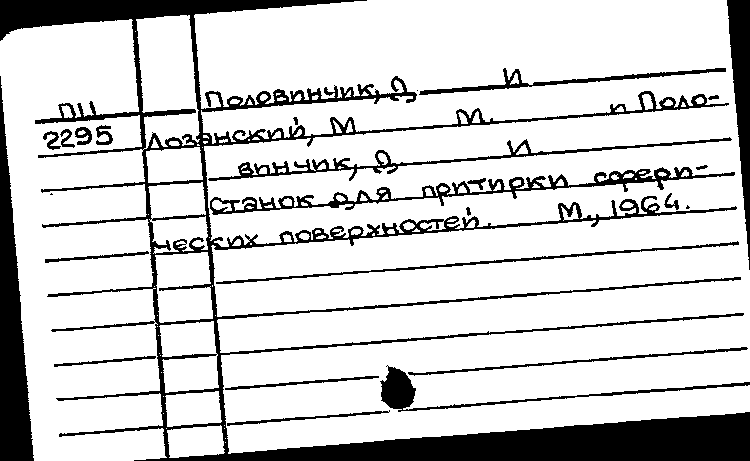 ПЦ Половинчик, Д. И.
2295 Лозанский, М. М. и Поло-
винчик, Д. И.
Станок для притирки сфери-
ческих поверхностей. М., 1964.